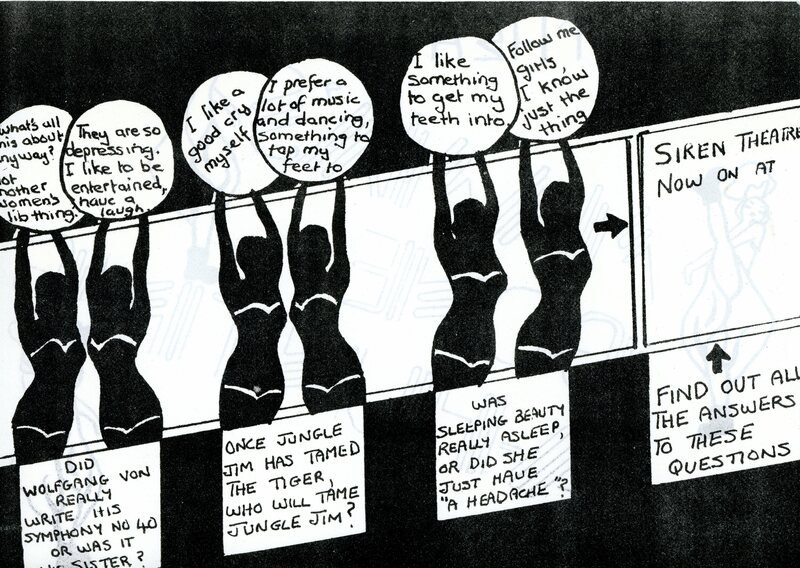 what's all
his about
nyway?
ot
nother
women's
lib thing.
They are so
depressing.
I like to be
entertained,
have a
laugh
I like a
good cry
myself
I prefer a
lot of music
and dancing,
something to
tap my
feet to
I like
something
to get my
teeth into
Follow me
girls,
I know
just the
thing
SIREN THEATRE
NOW ON AT
DID
WOLFGANG VON
REALLY
WRITE HIS
SYMPHONY NO 40
OR WAS IT
SISTER?
ONCE JUNGLE
JIM HAS TAMED
THE TIGER,
WHO WILL TAME
JUNGLE JIM?
WAS
SLEEPING BEAUTY
REALLY ASLEEP,
OR DID SHE
JUST HAVE
"A HEADACHE"?
FIND OUT ALL
THE ANSWERS
TO THESE
QUESTIONS